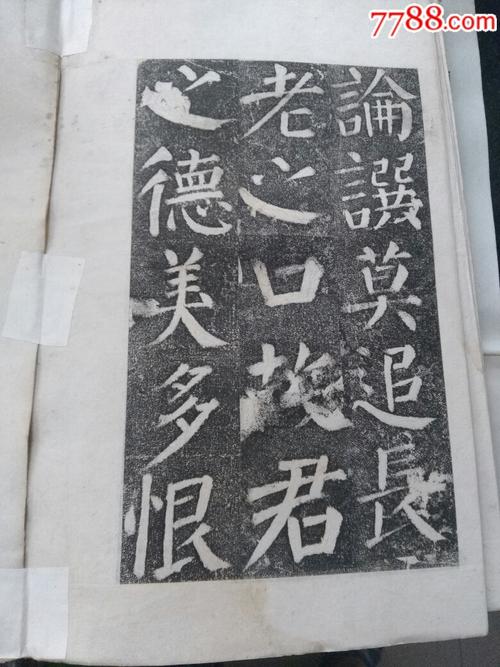 7788.com
論譔莫追長
老之口故君
之德美多恨